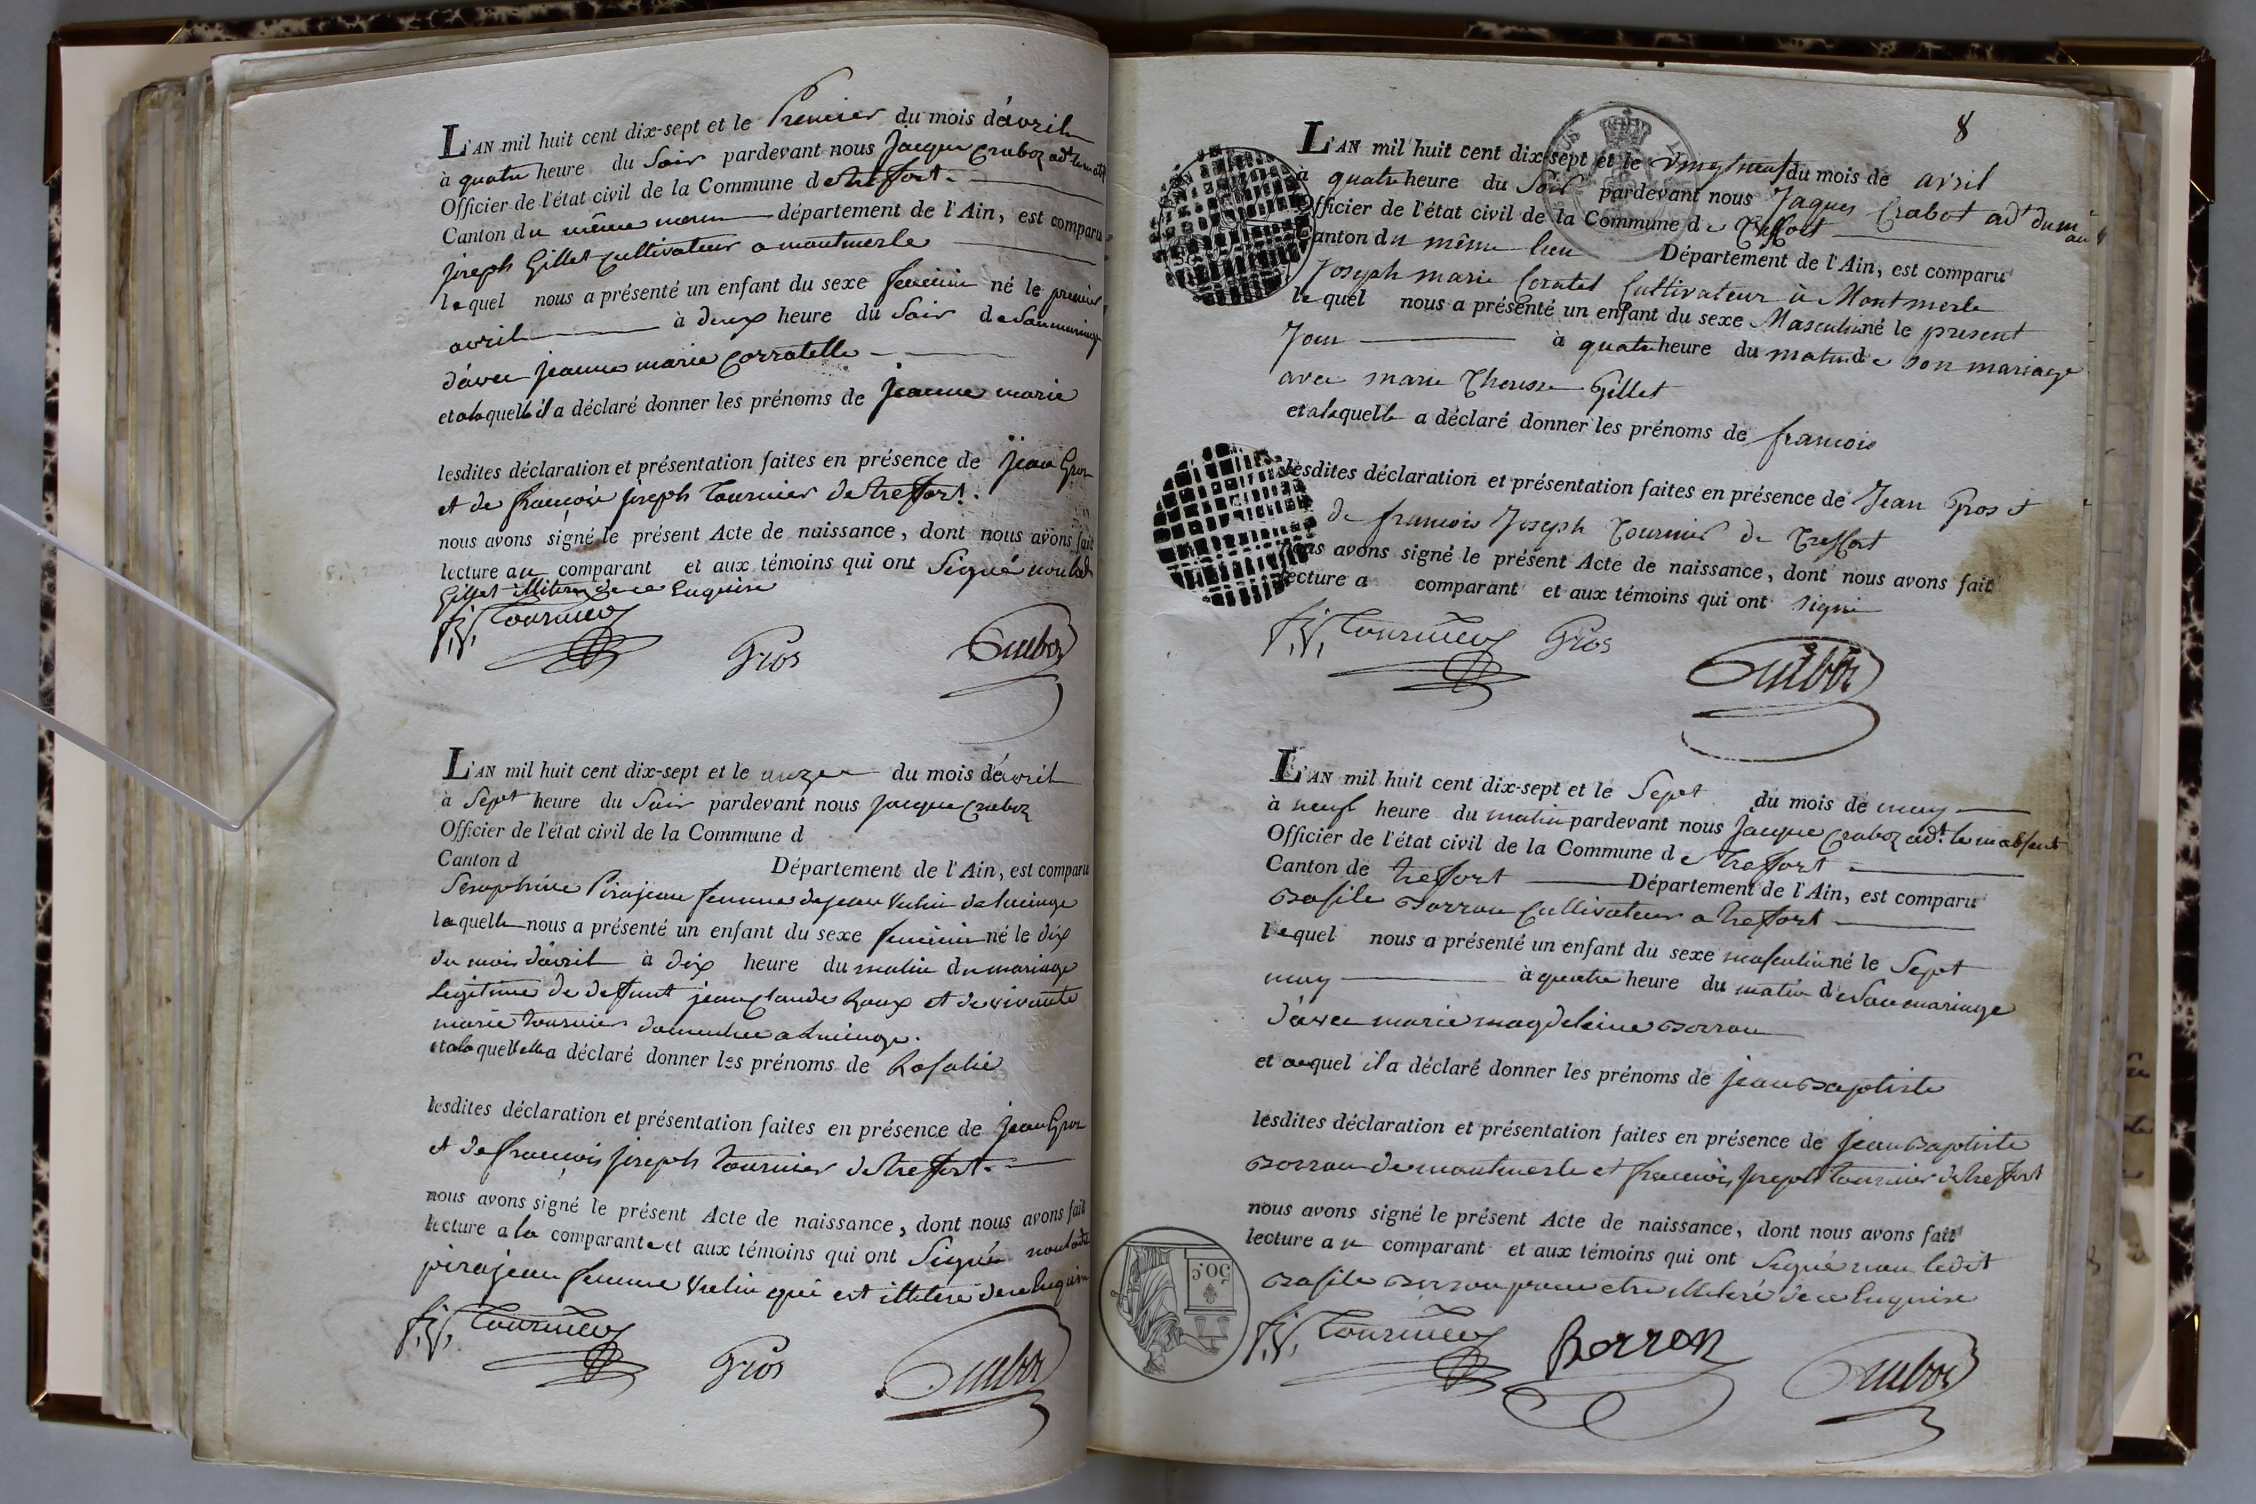 L'AN mil huit cent dix-sept et le Premier du mois d'avril
à quatre heure du Soir pardevant nous Jacque Craboz adt
Officier de l'état civil de la Commune de treffort
Canton du même nom département de l'Ain, est comparu
joseph Gillet Cultivateur a montmerle
lequel nous a présenté un enfant du sexe feminin né le premier
avril à deux heure du Soir de Son mariage
d'avec jeanne marie Corratelle
et a laquelle il a déclaré donner les prénoms de jeanne marie
lesdites déclaration et présentation faites en présence de jean Gros
et de françois joseph tournier de treffort.
nous avons signé le présent Acte de naissance, dont nous avons fait
lecture au comparant et aux témoins qui ont Signé non led
Gillet illiteré de ce Enquise
f.j. tournier
Gros
Craboz
L'AN mil huit cent dix-sept et le onze du mois d'avril
à Sept heure du Soir pardevant nous jacque Craboz
Officier de l'état civil de la Commune d
Canton d Département de l'Ain, est comparu
Seraphine Pirajean femme de jean Vulin de lucinge
laquelle nous a présenté un enfant du sexe feminin né le dix
du mois d'avril à dix heure du matin du mariage
legitime de deffunt jean claude Roux et de vivante
marie tournier domeuree a lucinge.
et a laquelle elle a déclaré donner les prénoms de Rosalie
lesdites déclaration et présentation faites en présence de jean Gros
et de françois joseph tournier de treffort.
nous avons signé le présent Acte de naissance, dont nous avons fait
lecture a la comparante et aux témoins qui ont Signé non ladte
pirajean femme Vulin qui est illiteré de ce Enquise
f.j. tournier
Gros
Craboz
8
L'AN mil huit cent dix-sept et le vingt neuf du mois de avril
à quatre heure du Soir pardevant nous Jaques Crabot adt du maire
Officier de l'état civil de la Commune de Treffort
Canton du même lieu Département de l'Ain, est comparu
Joseph marie Coratel Cultivateur à Montmerle
lequel nous a présenté un enfant du sexe Masculin né le present
Jour à quatre heure du matin de son mariage
avec marie Therese Gillet
et a laquelle a déclaré donner les prénoms de francois
lesdites déclaration et présentation faites en présence de Jean Gros et
de francois Joseph Tournier de Treffort
nous avons signé le présent Acte de naissance, dont nous avons fait
lecture a comparant et aux témoins qui ont signé
f.j. tournier
Gros
Craboz
L'AN mil huit cent dix-sept et le Sept du mois de may
à neuf heure du matin pardevant nous Jacque Craboz adt. le m absent
Officier de l'état civil de la Commune de treffort
Canton de treffort Département de l'Ain, est comparu
Basile Borron Cultivateur a treffort
lequel nous a présenté un enfant du sexe masculin né le Sept
may à quatre heure du matin de Son mariage
d'avec marie magdeleine Borron
et auquel il a déclaré donner les prénoms de jean Baptiste
lesdites déclaration et présentation faites en présence de jean Baptiste
Borron de montmerle et françois joseph tournier de treffort
nous avons signé le présent Acte de naissance, dont nous avons fait
lecture au comparant et aux témoins qui ont Signé non ledit
Basile Borron pour etre illiteré de ce Enquise
50.c
f.j. tournier
Borron
Craboz